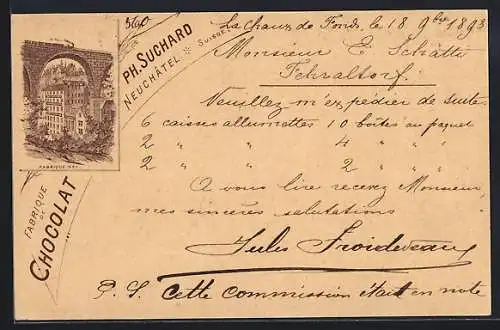 5640
La Chaux de Fonds, le 18 9bre 1893
PH. SUCHARD
NEUCHÂTEL * SUISSE
Monsieur E. Schätti
Fehraltorf.
Veuillez m'expédier de suite
6 caisses allumettes 10 boîtes au paquet
2 " " 4 " "
2 " " 2 " "
A vous lire recevez Monsieur,
mes sincères salutations
Jules Froidevaux
P. S. Cette commission était en note
FABRIQUE No 1
FABRIQUE
DE
CHOCOLAT